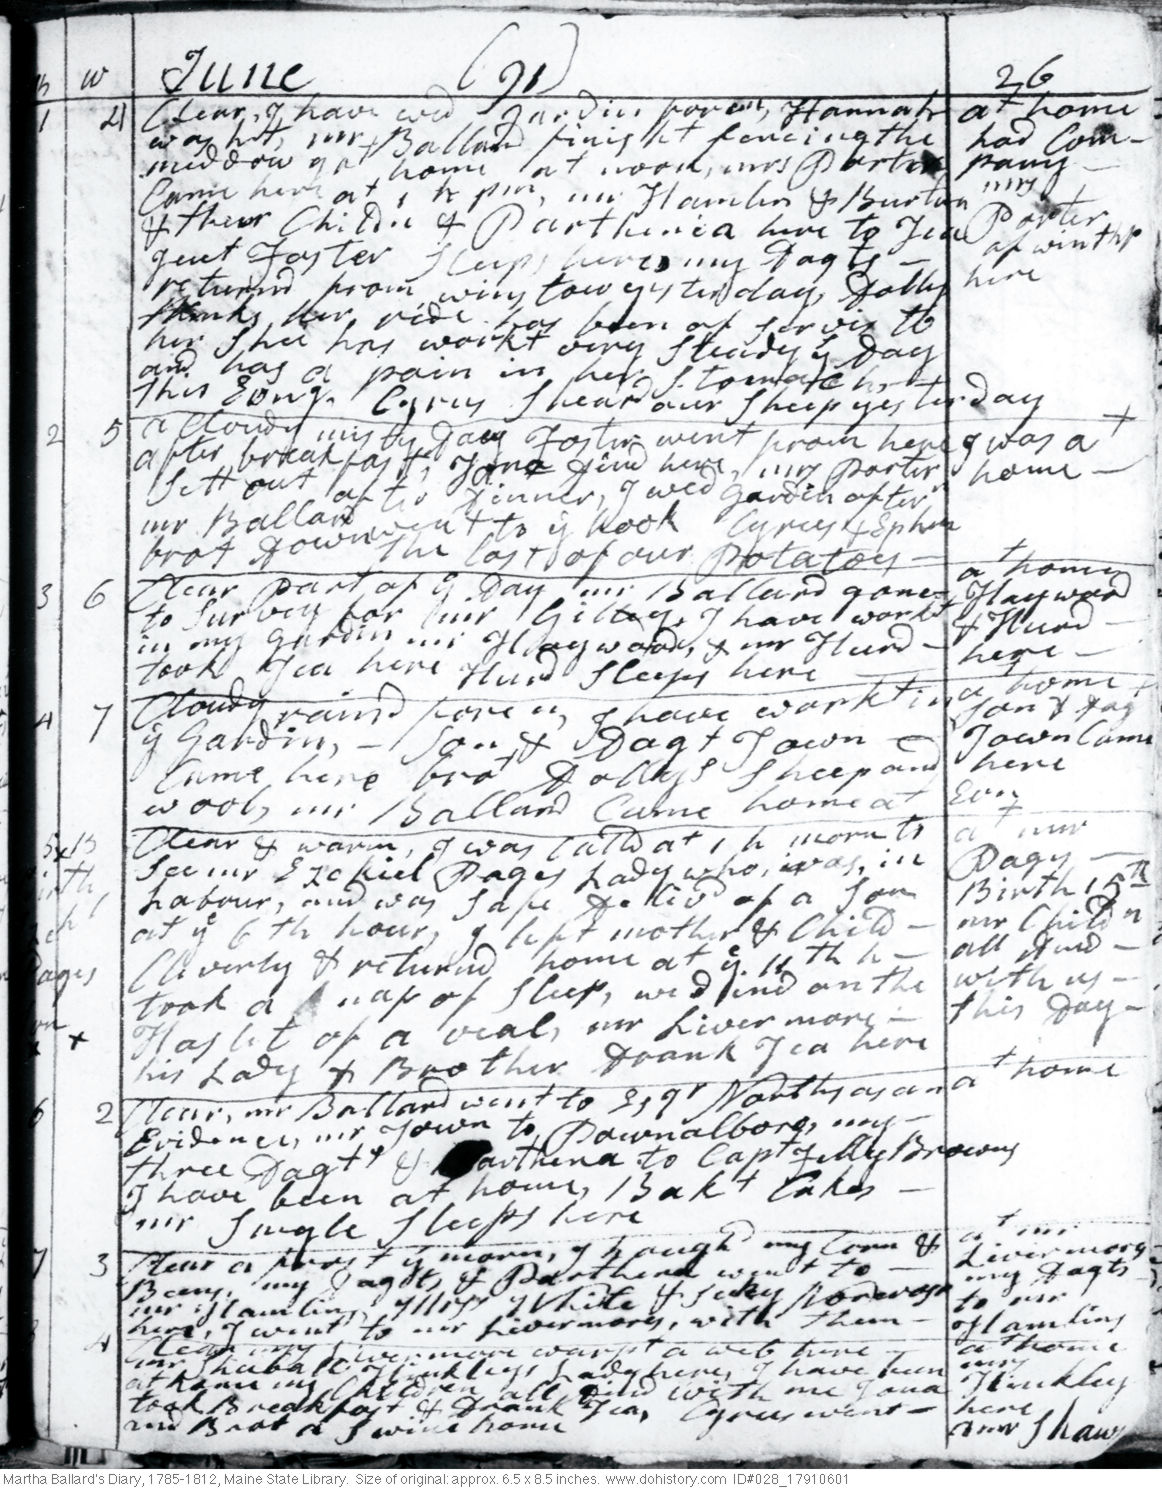 June (91) 26
1 4 Clear, I have wed gardin foren, Hannah at home
washt, mr Ballard finisht fencing the had Com-
meddow & at home at noon, mrs Porter pany -
Came here at 1 h pm, mr Hamlin & Burtun mrs
& their Childn & Parthenia here to Tea Porter
Jeut Foster Sleeps here, my Dagts - of winthp
returnd from winstow yesterday, Dolly here
thinks her ride has been of servis to
her Shee has workt very steady ye Day
and has a pain in her Stomach,
this Evng. Cyrus Sheard our Sheep yesterday
2 5 a Cloudy misty Day Foster went from here I was at
after breakfast, Jona dind here, mrs Porter home -
sett out after Dinner, I wed gardin after
mr Ballard went to ye hook Cyrus & Ephm
brot Down the last of our Potatoes -
3 6 Clear part of ye Day mr Ballard gone at home
to Survey for mr Gilley, I have workt Hayward
in my gardin mr Haywood, & mr Hurd - & Hurd -
took Tea here Hurd Sleeps here here -
4 7 Cloudy, raind foren, I have workt in at home
ye Gardin, - Son & Dagt Town - Son & Dagt
Came here brot Dollys Sheep and Town Came here
wool, mr Ballard Came home at Evn
5 x B Clear & warm, I was Calld at 1 h morn to at mr
Birth see mr Ezekiel Pages Lady who, was, in Pages -
Labour, and was safe Delivd of a Son Birth 15th
at ye 6th hour, I left mother & Child - mr Childn
Pages Cleverly & returnd home at ye 11th h - all dind -
took a nap of Sleep, we dind on the with us -
son Haslet of a veal, mr Livermore - this Day -
x x his Lady & Brother Drank Tea here
6 2 Clear, mr Ballard went to Esqr Norths as an at home
Evidence, mr Town to Pownalboro, my -
three Dagts & Parthena to Capt Jelly Browns
I have been at home, Bakt Cakes -
mr Smyle Sleeps here
7 3 Clear a frost ye morn, I hough my Corn & at mr
Beens, my Dagts & Parthena went to - Livermores
mr Hamlins, miss White & Suky Norcross my Dagts
here, I went to mr Livermores, with them - to mr Hamlins
4 Clear mrs Livermore warpt a web here - at home
mr Shubael Hinkleys Lady here, I have been mrs
at home my Children all dind with me Jona Hinkley
took Breakfast & Drank Tea, Cyrus went - here
and Brot a Swine home mr Shaw
Martha Ballard's Diary, 1785-1812, Maine State Library. Size of original: approx. 6.5 x 8.5 inches. www.dohistory.com ID#028_17910601